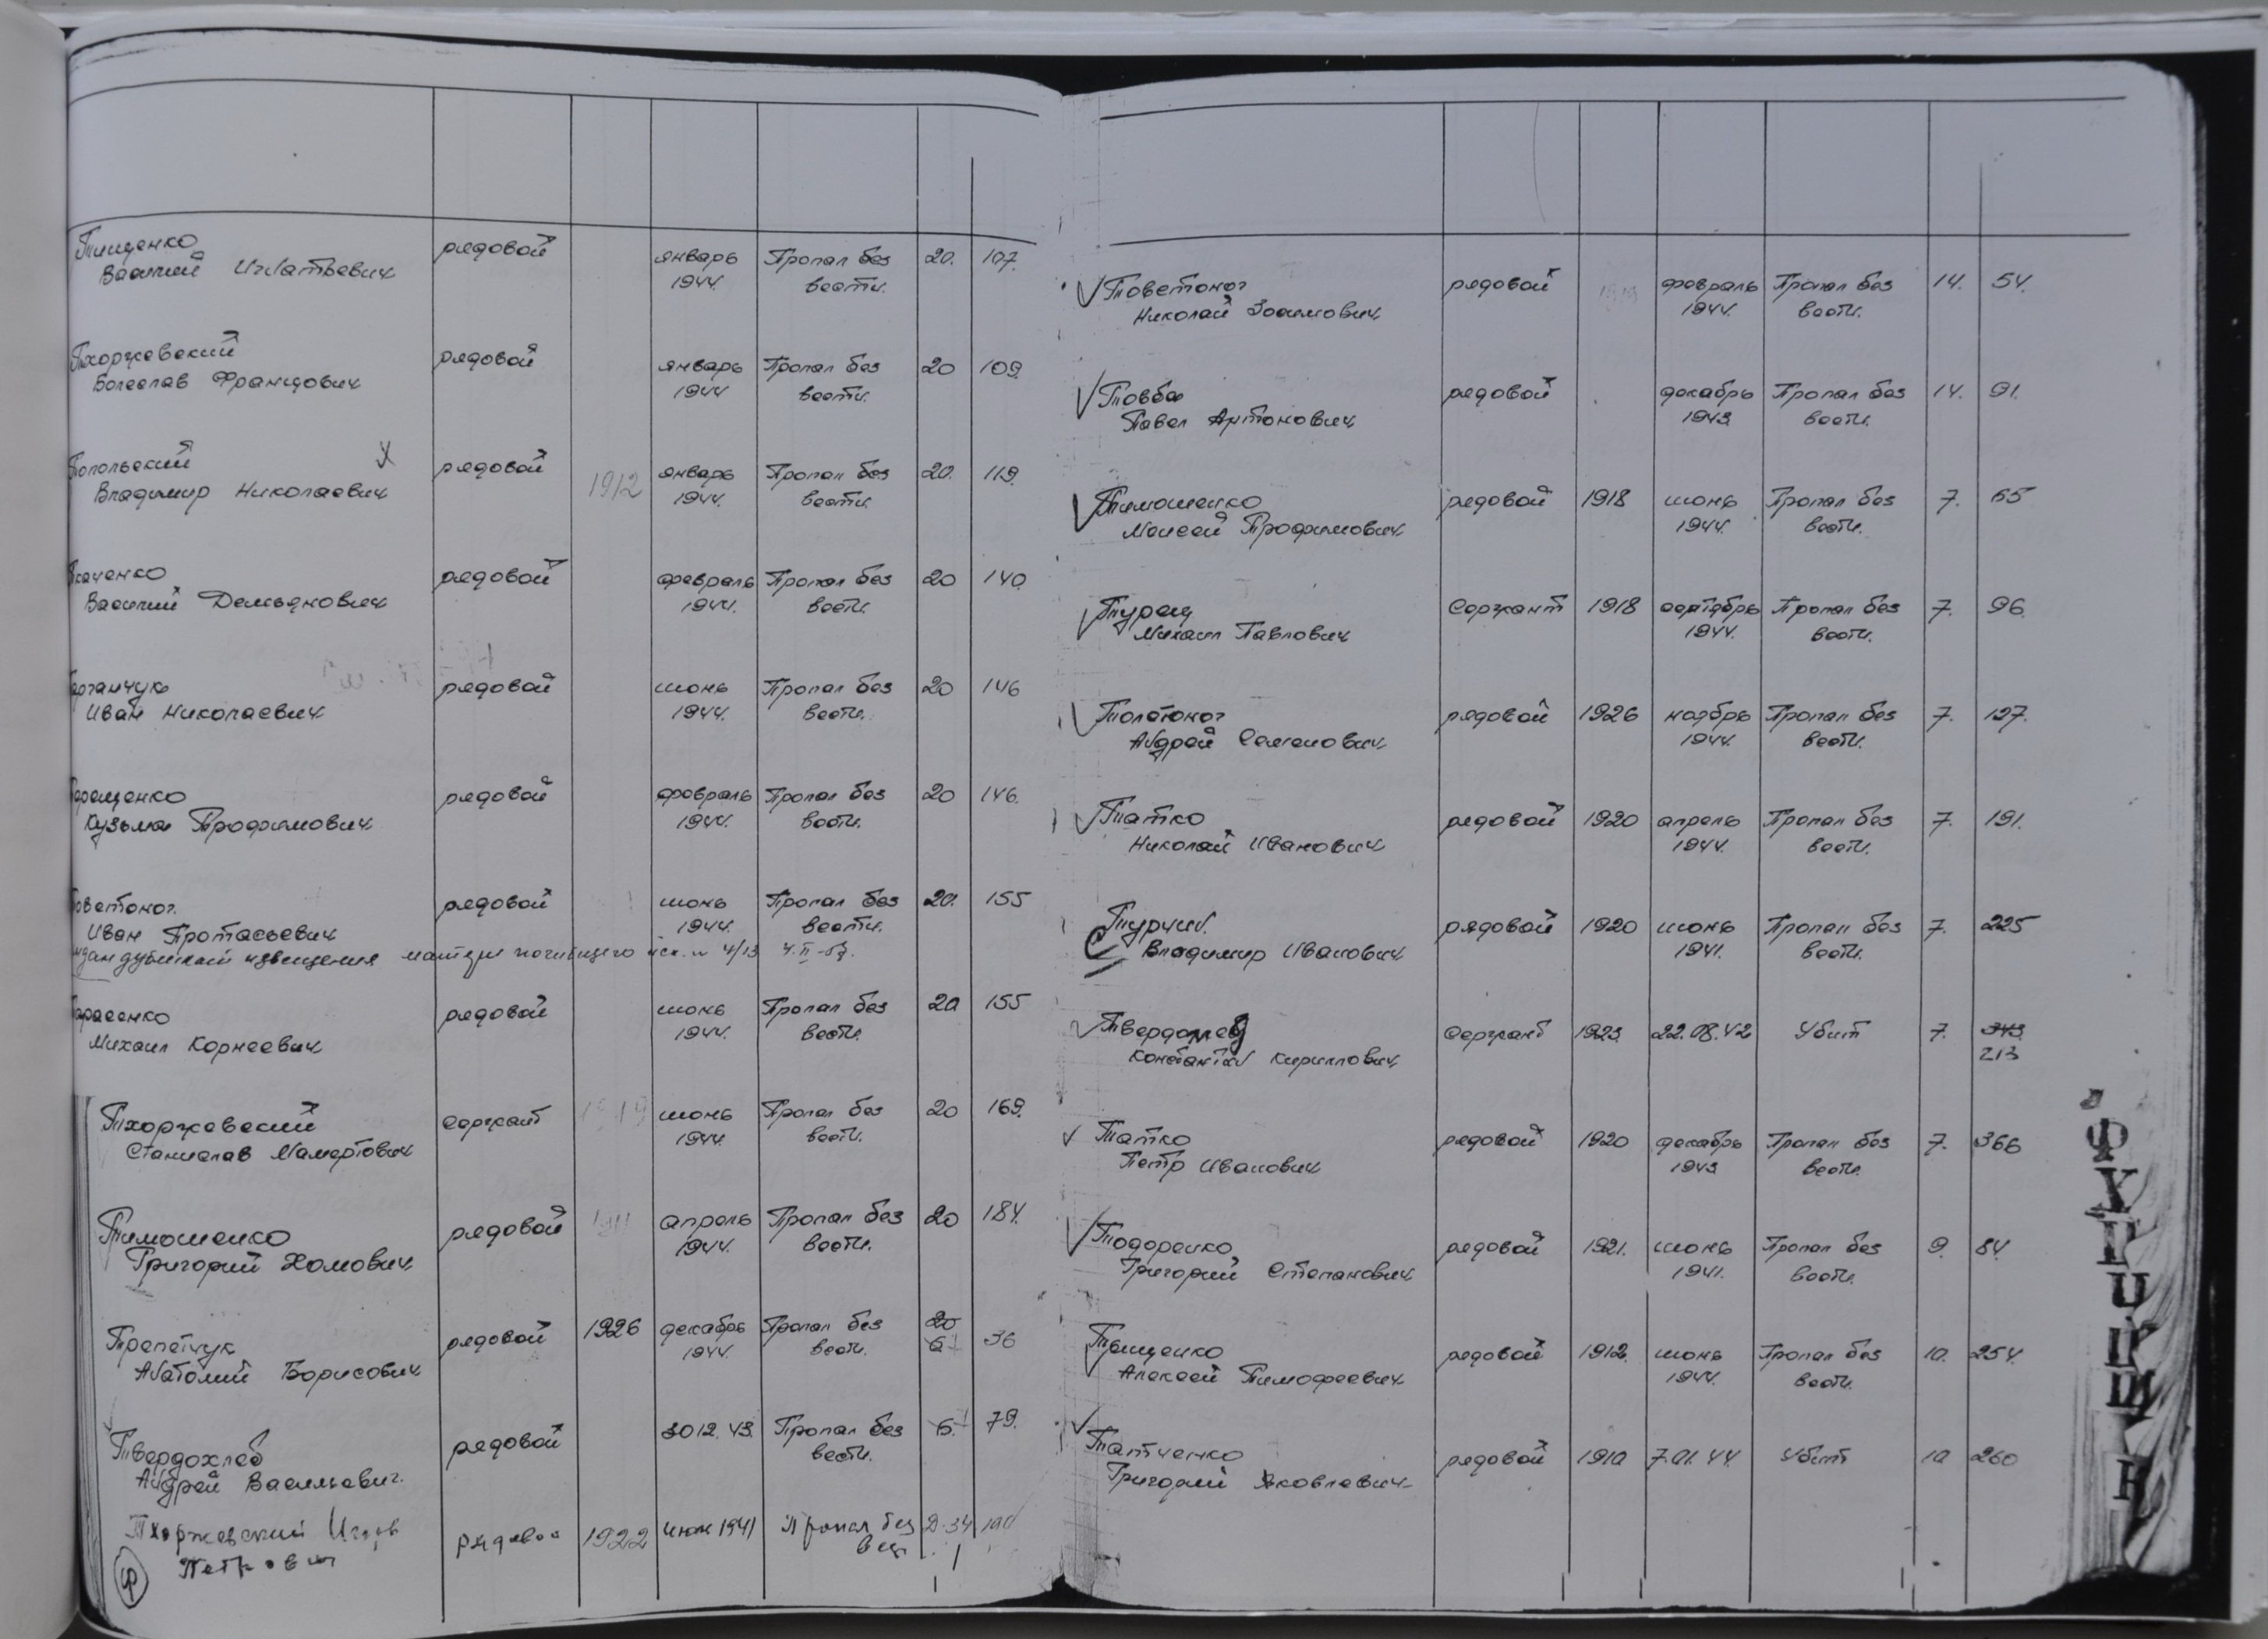 Тищенко рядовой январь Пропал без 20. 107.
Василий Игнатьевич 1944. вести.
Тхоржевский рядовой январь Пропал без 20 109.
Болеслав Францович 1944 вести.
Топольский X рядовой 1912 январь Пропал без 20. 119.
Владимир Николаевич 1944. вести.
Ткаченко рядовой февраль Пропал без 20 140.
Василий Демьянович 1944. вести.
рядовой июнь Пропал без 20 146
Иван Николаевич 1944. вести.
Терещенко рядовой февраль Пропал без 20 146.
Кузьма Трофимович 1944. вести.
Товстоног. рядовой июнь Пропал без 20. 155
Иван Протасьевич 1944. вести.
дубликат извещения матери погибшего исх. № 4/13 4.II-
Тарасенко рядовой июнь Пропал без 20 155
Михаил Корнеевич 1944. вести.
Тхоржевский сержант 1919 июнь Пропал без 20 169.
Станислав Мамертович 1944. вести.
Тимошенко рядовой 1911 апрель Пропал без 20 184.
Григорий Хомович 1944. вести.
Трепетчук рядовой 1926 декабрь Пропал без 20 36
Анатолий Борисович 1944. вести. 6
Твердохлеб рядовой 30.12.43. Пропал без 6. 79.
Андрей Васильевич. вести.
Тхоржевский рядовой 1922 июнь 1941 Пропал без Д-34
Петрович вести
Товстоног рядовой 1919 февраль Пропал без 14. 54.
Николай Зосимович 1944. вести.
Товба рядовой декабрь Пропал без 14. 91.
Павел Антонович 1943 вести.
Тимошенко рядовой 1918 июнь Пропал без 7. 65
Моисей Трофимович 1944. вести.
Турец Сержант 1918 сентябрь Пропал без 7. 96.
Михаил Павлович 1944. вести.
Толстоног рядовой 1926 ноябрь Пропал без 7. 127.
Андрей Семенович 1944. вести.
Татко рядовой 1920 апрель Пропал без 7. 191.
Николай Иванович 1944. вести.
Турчин. рядовой 1920 июнь Пропал без 7. 225
Владимир Иванович 1941. вести.
Твердомед Сержант 1923. 22.08.42 Убит 7. 343
Константин Кириллович 213
Татко рядовой 1920 декабрь Пропал без 7. 366
Петр Иванович 1943 вести.
Тодоренко рядовой 1921. июнь Пропал без 9. 84.
Григорий Степанович 1941. вести.
Тищенко рядовой 1912. июнь Пропал без 10. 254.
Алексей Тимофеевич 1944. вести.
Татченко рядовой 1910 7.01.44 Убит 10 260
Григорий Яковлевич
Ф
Х
Ц